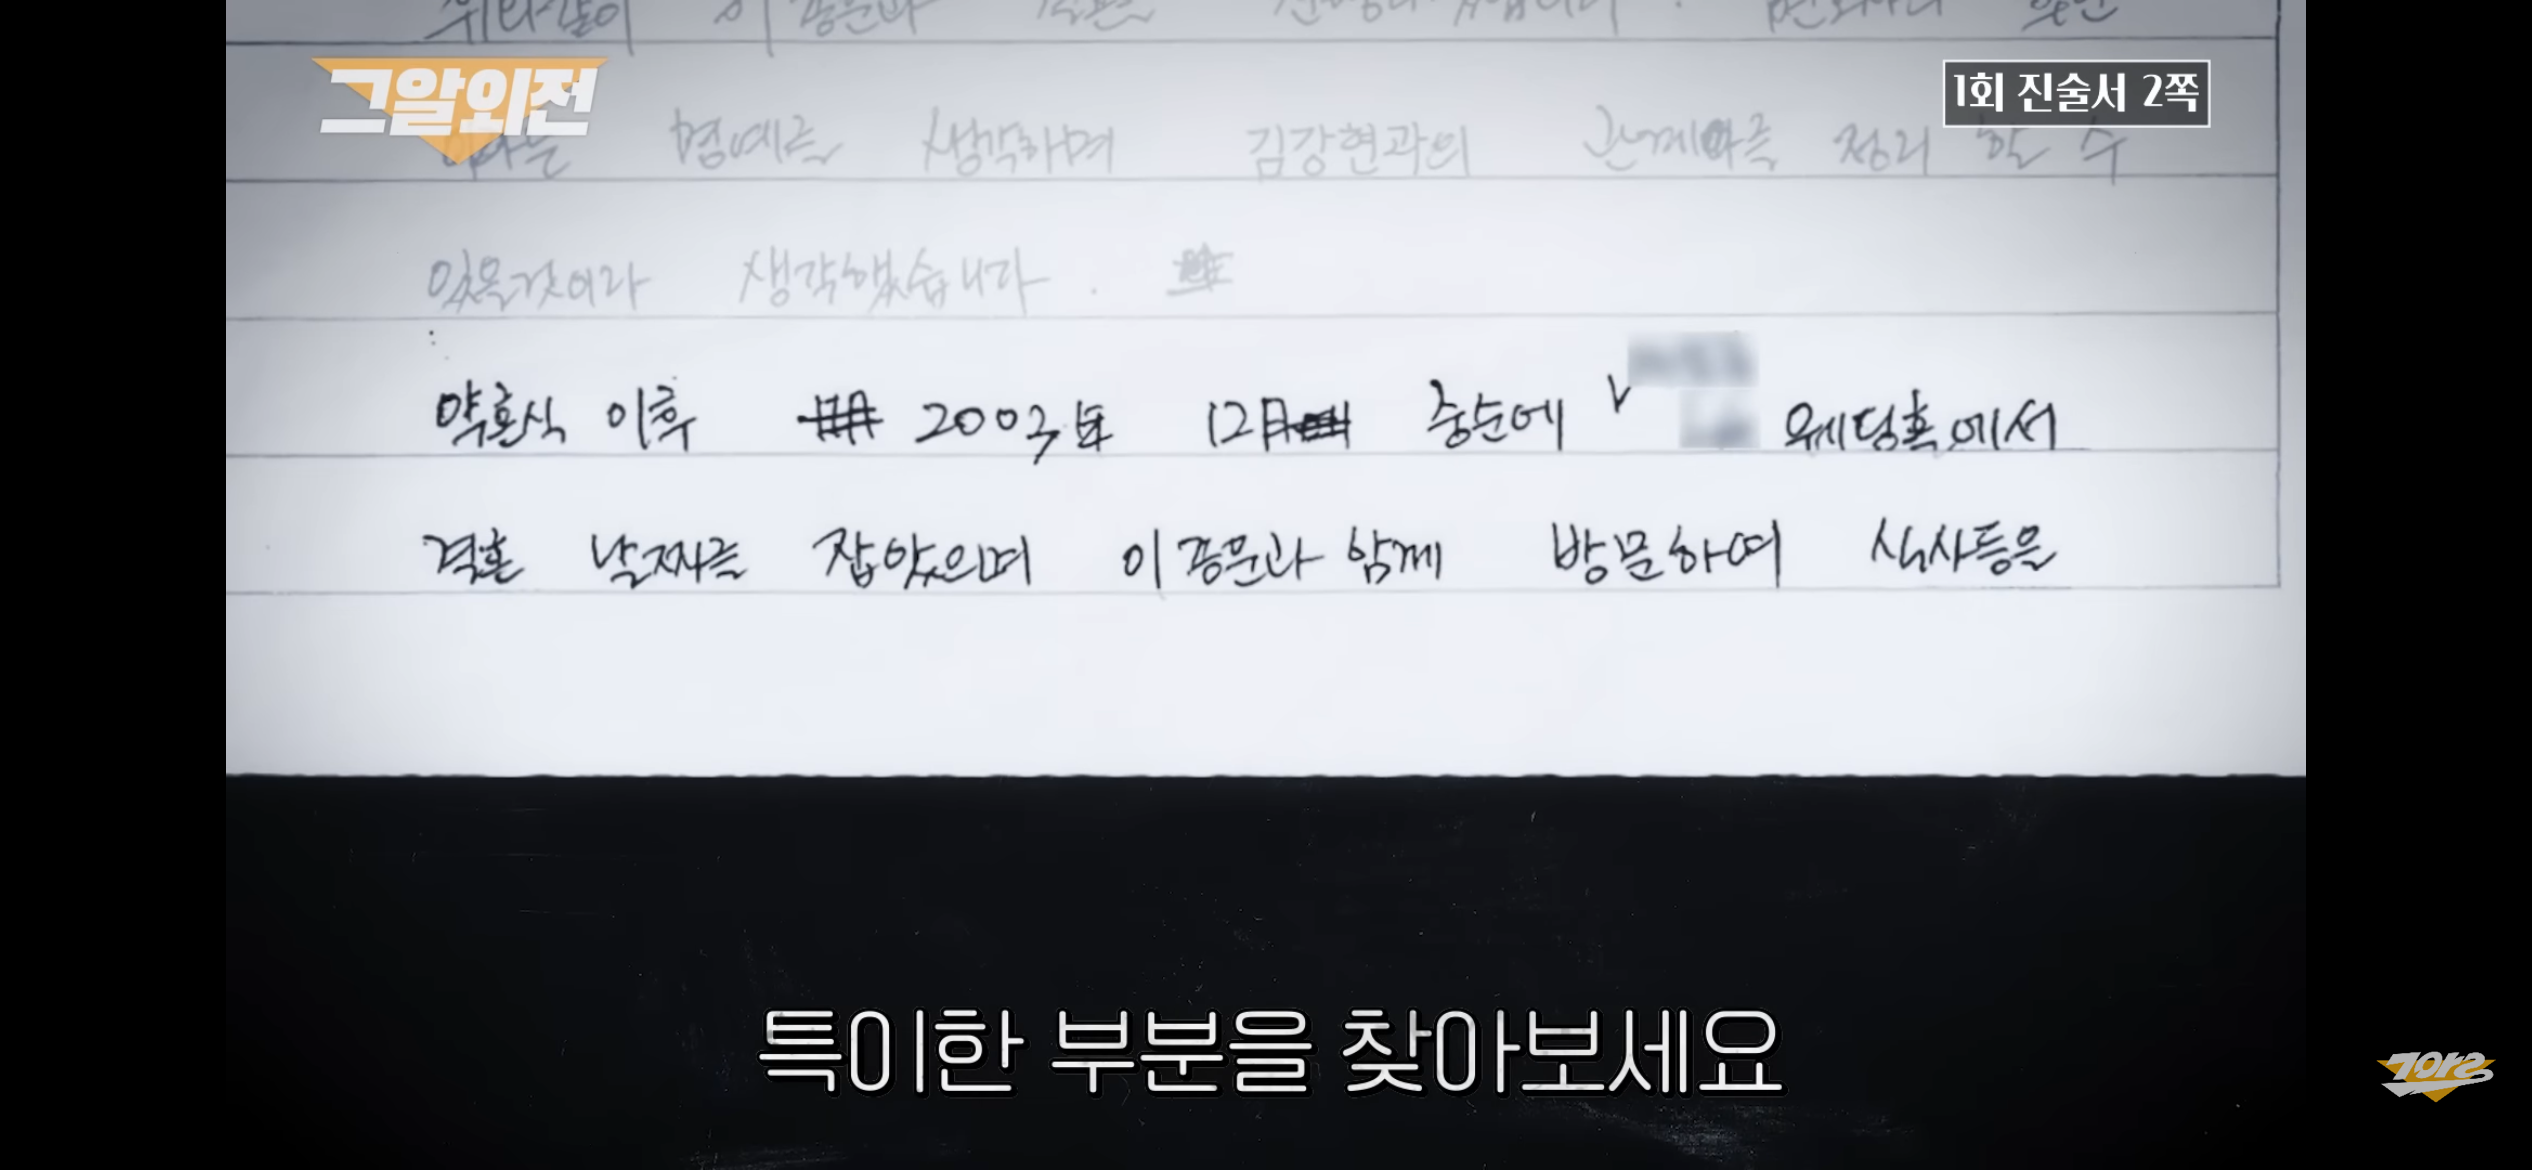 위와같이 이종문과
그알외전
1회 진술서 2쪽
명예를 생각하며 김강현과의 관계를 정리 할 수
있을것이라 생각했습니다.
약혼식 이후 2003년 12월 중순에 웨딩홀에서
결혼 날짜를 잡았으며 이종문과 함께 방문하여 식사등을
특이한 부분을 찾아보세요
그알